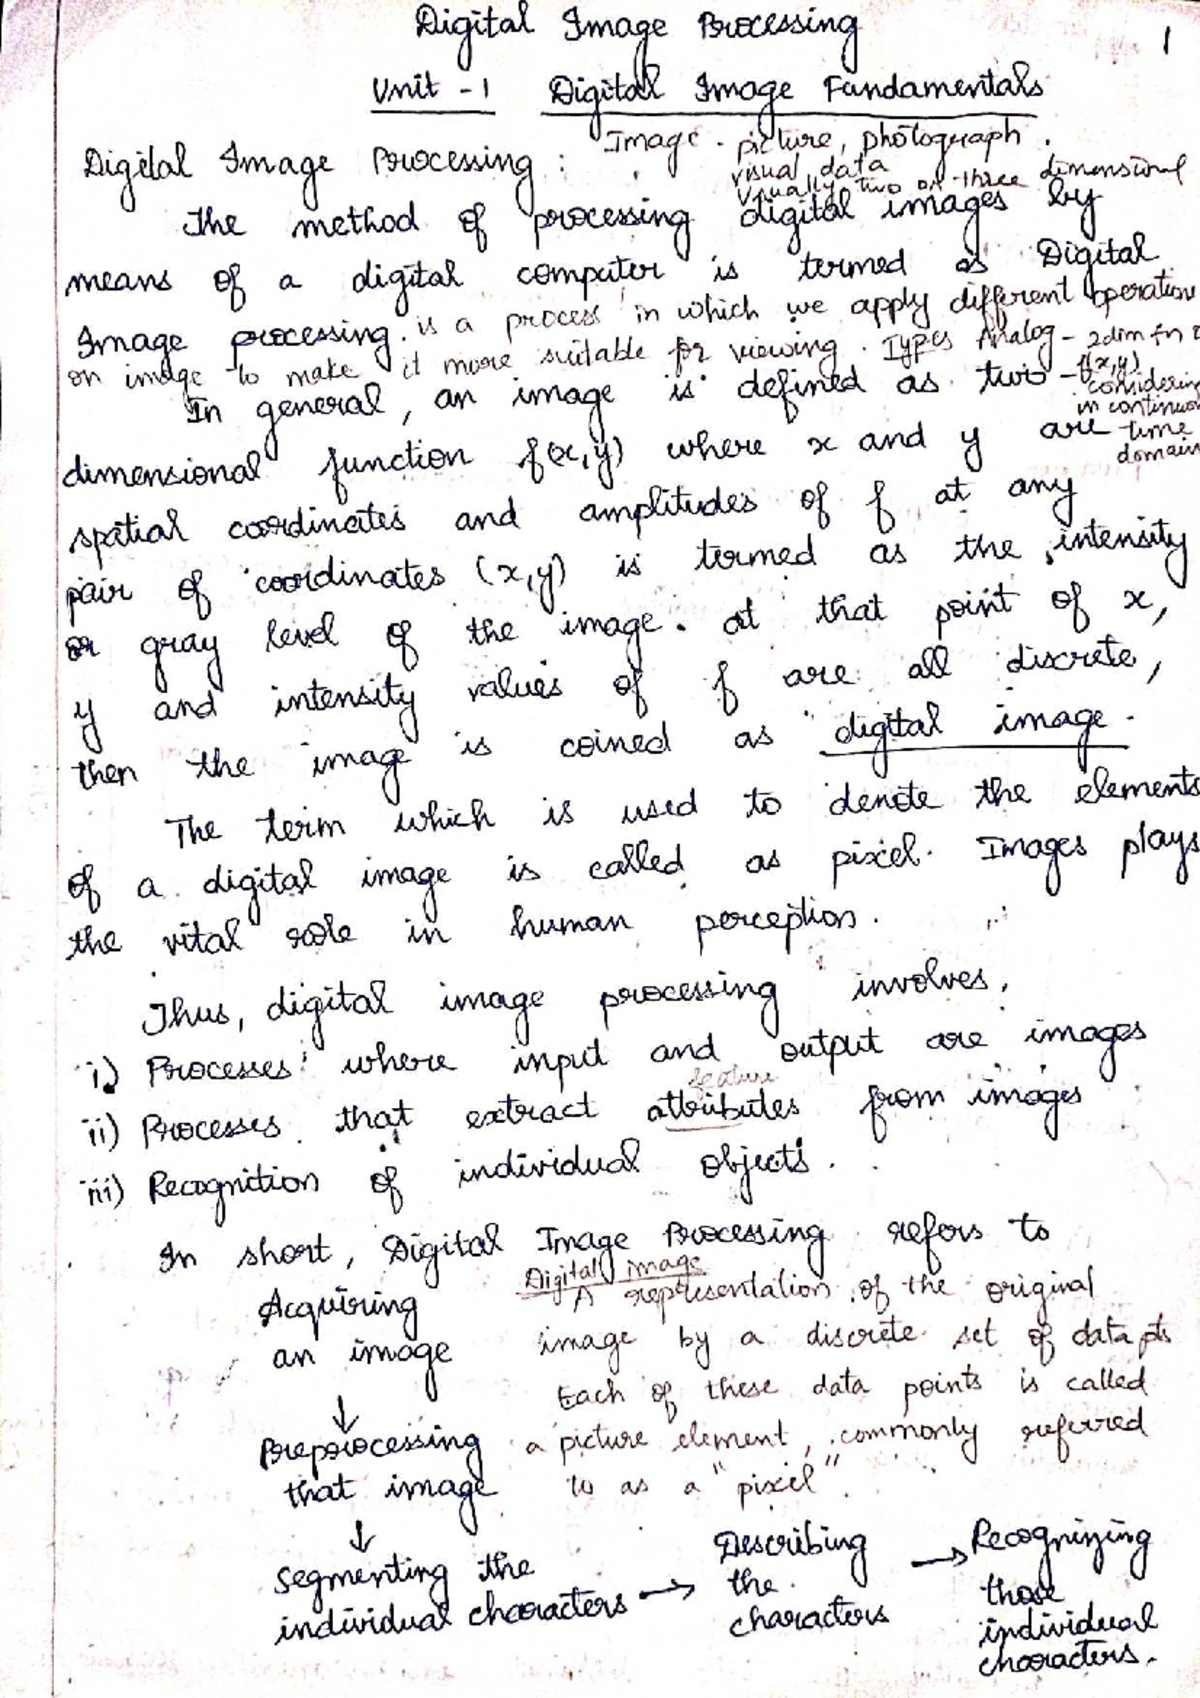 Digital Image Processing
1
Unit - 1 Digital Image Fundamentals
Digital Image Processing : Image - picture, photograph.
visual data
usually two or three dimensional
The method of processing digital images by
means of a digital computer is termed as Digital
Image processing. is a process in which we apply different operation
on image to make it more suitable for viewing. Types Analog - 2dim fn
f(x,y)
In general, an image is defined as two -
considering
in continuous
dimensional function f(x,y) where x and y are
time
domain
spatial coordinates and amplitudes of f at any
pair of coordinates (x,y) is termed as the intensity
or gray level of the image. at that point of x,
y and intensity values of f are all discrete,
then the image is coined as "digital image.
The term which is used to denote the elements
of a digital image is called as pixel. Images plays
the vital role in human perception.
Thus, digital image processing involves,
i) Processes where input and output are images
feature
ii) Processes that extract attributes from images
iii) Recognition of individual objects.
In short, Digital Image Processing refers to
Acquiring
an image
↓
Preprocessing
that image
↓
Segmenting the
individual characters → Describing
the
characters
→ Recognizing
those
individual
characters.
Digital image
A representation of the original
image by a discrete set of data pts
Each of these data points is called
a picture element, commonly referred
to as a "pixel".